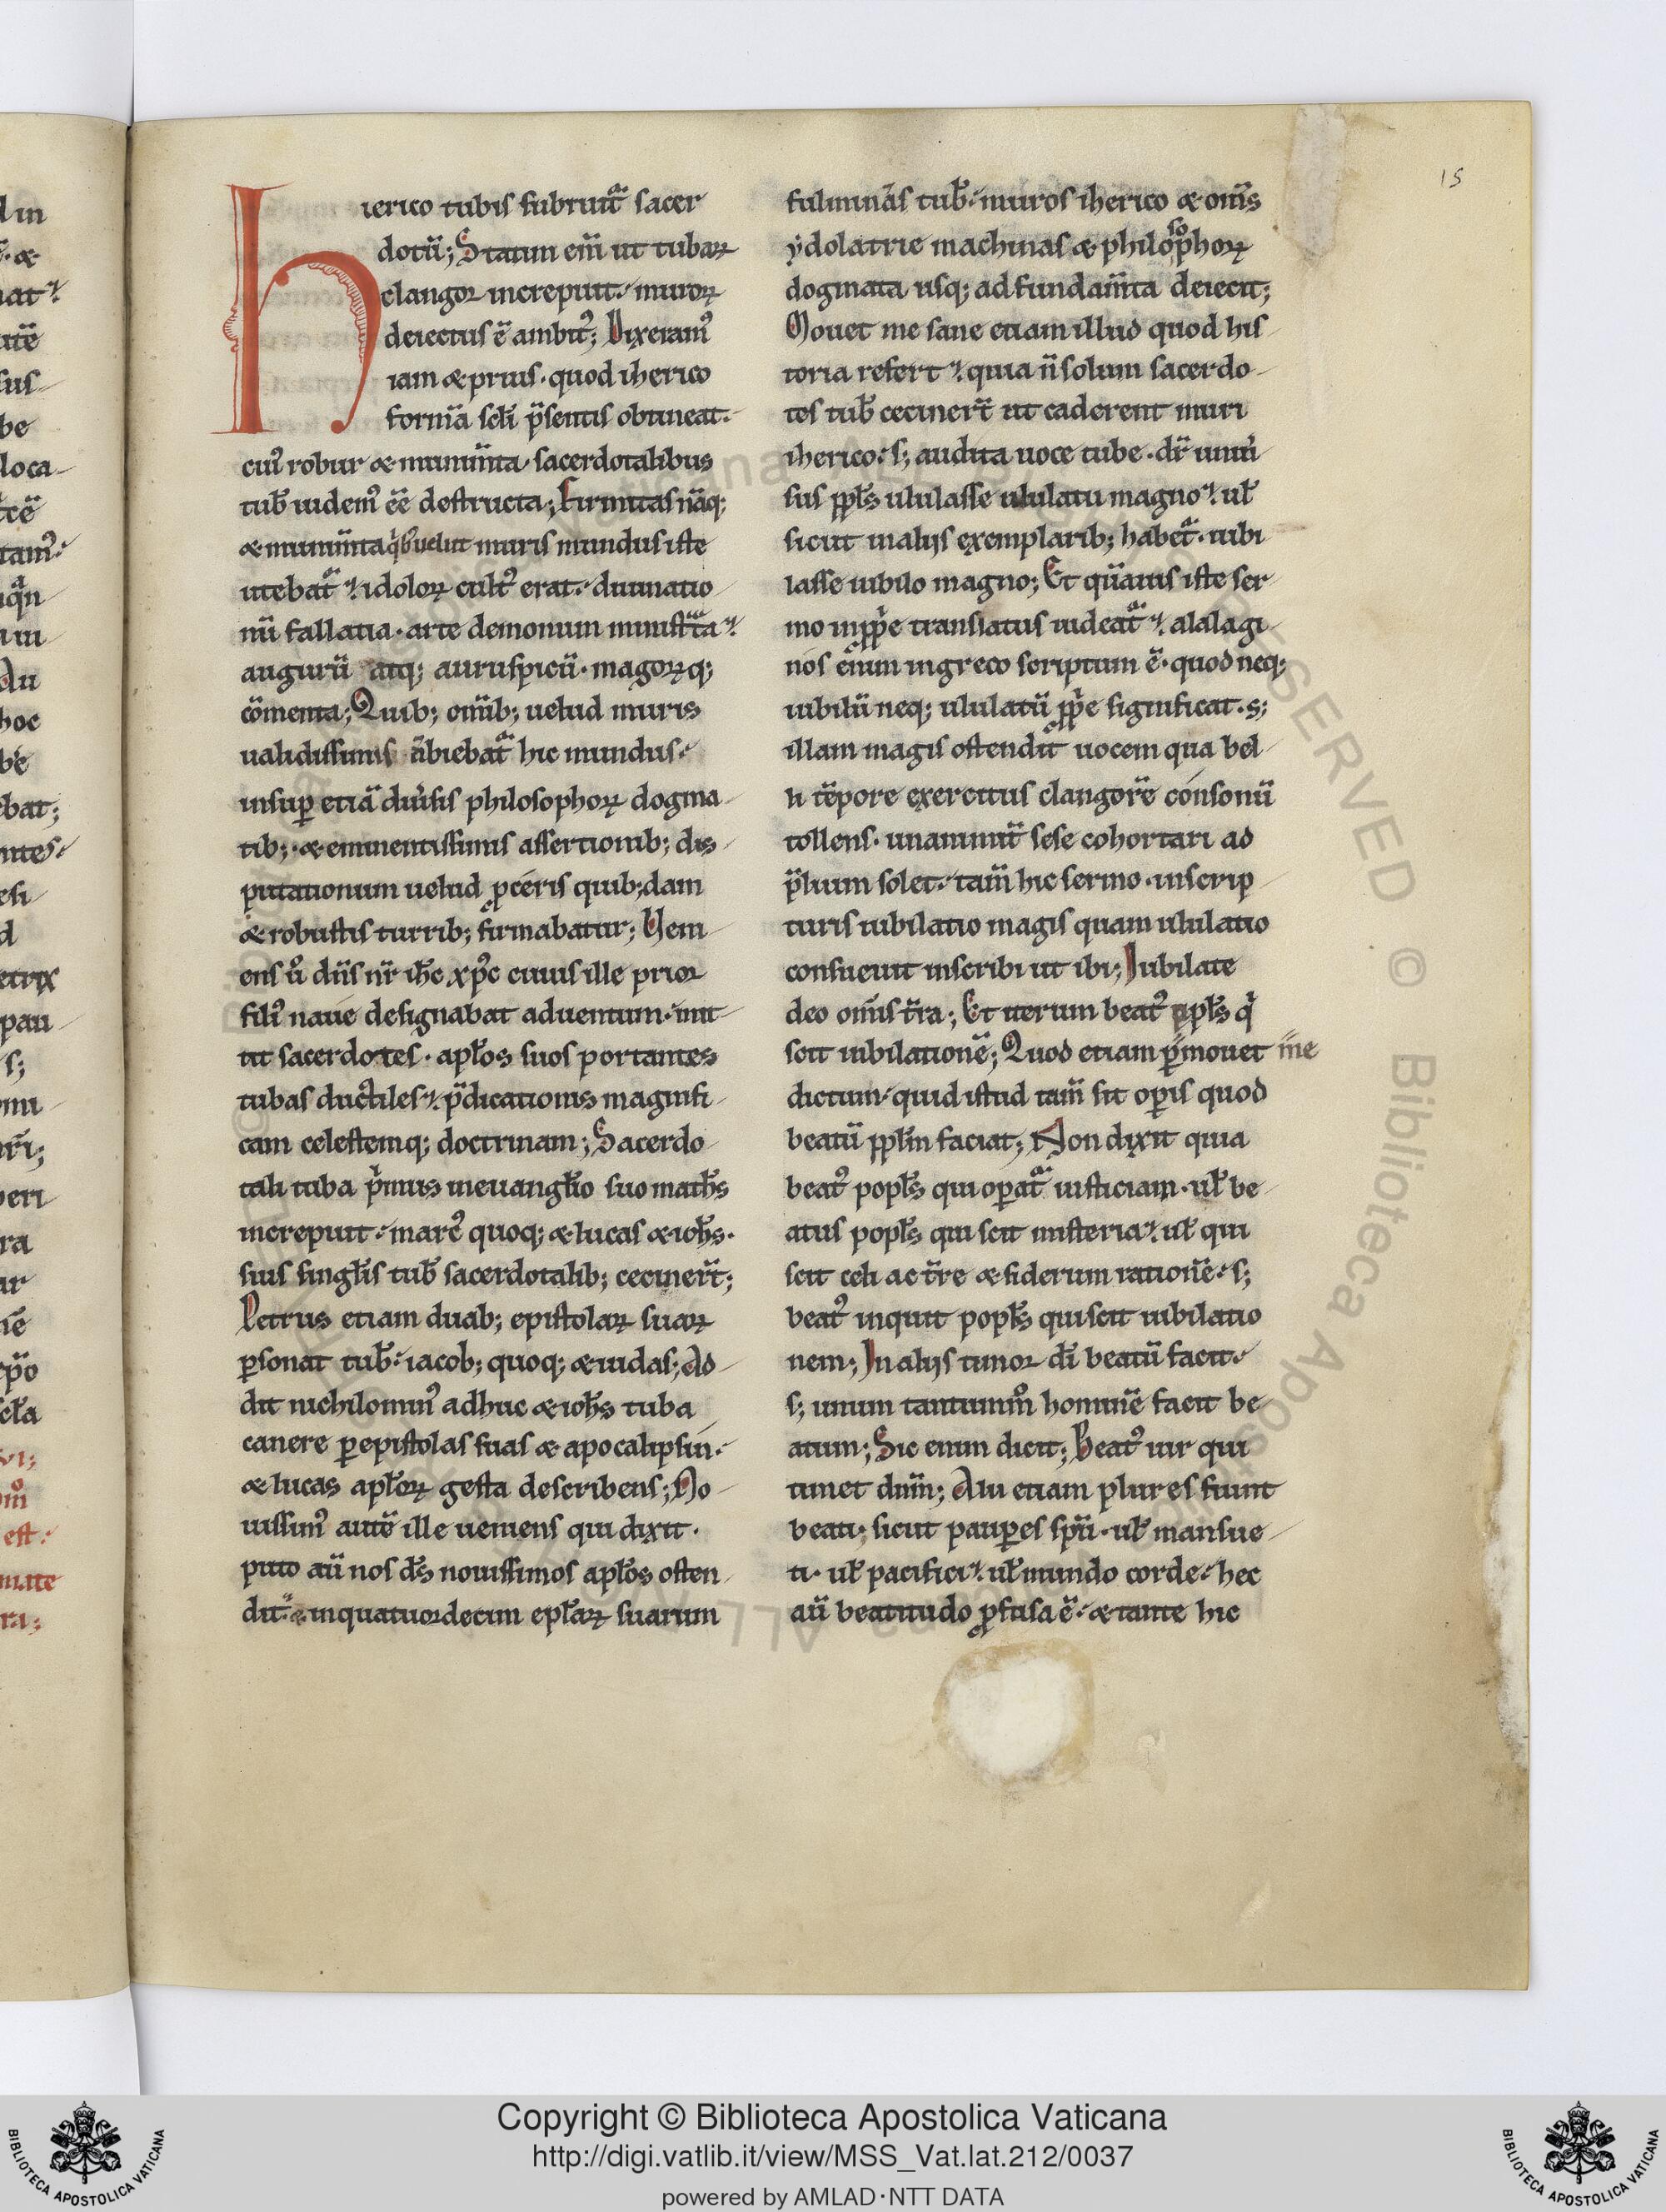 15
Hierico tubis subruit᷑ sacer
dotū; Statim eni̅ ut tubaꝝ
clangor increpuit. muroꝝ
deiectus ē ambitꝰ; Dixeramꝰ
iam & prius. quod iherico
formā scl̄i p̄sentis obtineat.
cuiꝰ robur & munim̄ta sacerdotalibus
tub̄ uidemꝰ eē destructa; Firmitas nāq;
& munim̄ta qͥb; uelut muris mundus iste
utebat᷑. idoloꝝ cultꝰ erat. diuinatio
nū fallatia. arte demonum ministᷓta.
augurū atq; auruspicū. magoꝝq;
cōmenta; Quib; om̄ib; uelud muris
ualidissimis ābiebat᷑ hic mundus.
insuꝑ etiā diu̾sis philosophoꝝ dogma
tib;. & eminentissimis assertionib; dis
putationum uelud ꝓceris quib;dam
& robustis turrib; firmabatur; Veni
ens u̾o dn̄s nr̄ ih̄c xp̄c cuius ille prior
filiꝰ naue designabat aduentum. mit
tit sacerdotes. apl̄os suos portantes
tubas ductiles. p̄dicationis magnifi
cam celestemq; doctrinam; Sacerdo
tali tuba pͥmus in euangl̄io suo math̄s
increpuit. marcꝰ quoq; & lucas & ioh̄s.
suis singl̄is tub̄ sacerdotalib; cecinert̄;
Petrus etiam duab; epistolaꝝ suaꝝ
ꝑsonat tub̄. iacob; quoq; & iudas; Ad
dit nichilominꝰ adhuc & ioh̄s tuba
canere ꝑ epistolas suas & apocalipsin.
& lucas apl̄oꝝ gesta describens; No
uissimꝰ autē ille ueniens qui dixit.
puto aū nos d̄s nouissimos apl̄os osten
dit. & in quatuordecim epl̄aꝝ suarum
fulminās tub̄. muros iherico & om̄s
ẏdolatrie machinas & philosophoꝝ
dogmata usq; ad fundam̄ta deiecit;
Mouet me sane etiam illud quod his
toria refert. quia n̄ solum sacerdo
tes tub̄ cecinert̄ ut caderent muri
iherico. s; audita uoce tube. dr̄ uniu̾
sus ppl̄s ululasse ululatu magno. ul̄
sicut in alijs exemplarib; habet᷑. iubi
lasse iubilo magno; Et quāuis iste ser
mo inpͥpe translatus uideat᷑. alalagi
nos enim in greco scriptum ē. quod neq;
iubilū neq; ululatū ꝓpͥe significat. s;
illam magis ostendit uocem qua bel
li tēpore exercitus clangorē consonū
tollens. unanimit̄ sese cohortari ad
p̄lium solet. tam̄ hic sermo. in scrip
turis iubilatio magis quam ululatio
consueuit inscribi ut ibi; Iubilate
deo om̄is t̄ra; Et iterum beatꝰ ppl̄s qͥ
scit iubilationē; Quod etiam ꝑmouet me
dictum. quid istud tam̄ sit oꝑis quod
beatū ppl̄m faciat; Non dixit quia
beatꝰ popl̄s qui oꝑat᷑ iusticiam. ul̄ be
atus popl̄s qui scit misteria. ul̄ qui
scit celi ac t̄re & siderum rationē. s;
beatꝰ inquit popl̄s qui scit iubilatio
nem; In alijs timor dī beatū facit.
s; unum tantumm̊ hominē facit be
atum; Sic enim dicit; Beatꝰ uir qui
timet dn̄m; Alii etiam plures fiunt
beati. sicut pauꝑes spū. ul̄ mansue
ti. ul̄ pacifici. ul̄ mundo corde. hec
aū beatitudo ꝓfusa ē. & tante hic
Copyright © Biblioteca Apostolica Vaticana
http://digi.vatlib.it/view/MSS_Vat.lat.212/0037
powered by AMLAD·NTT DATA
BIBLIOTECA APOSTOLICA VATICANA
BIBLIOTECA APOSTOLICA VATICANA